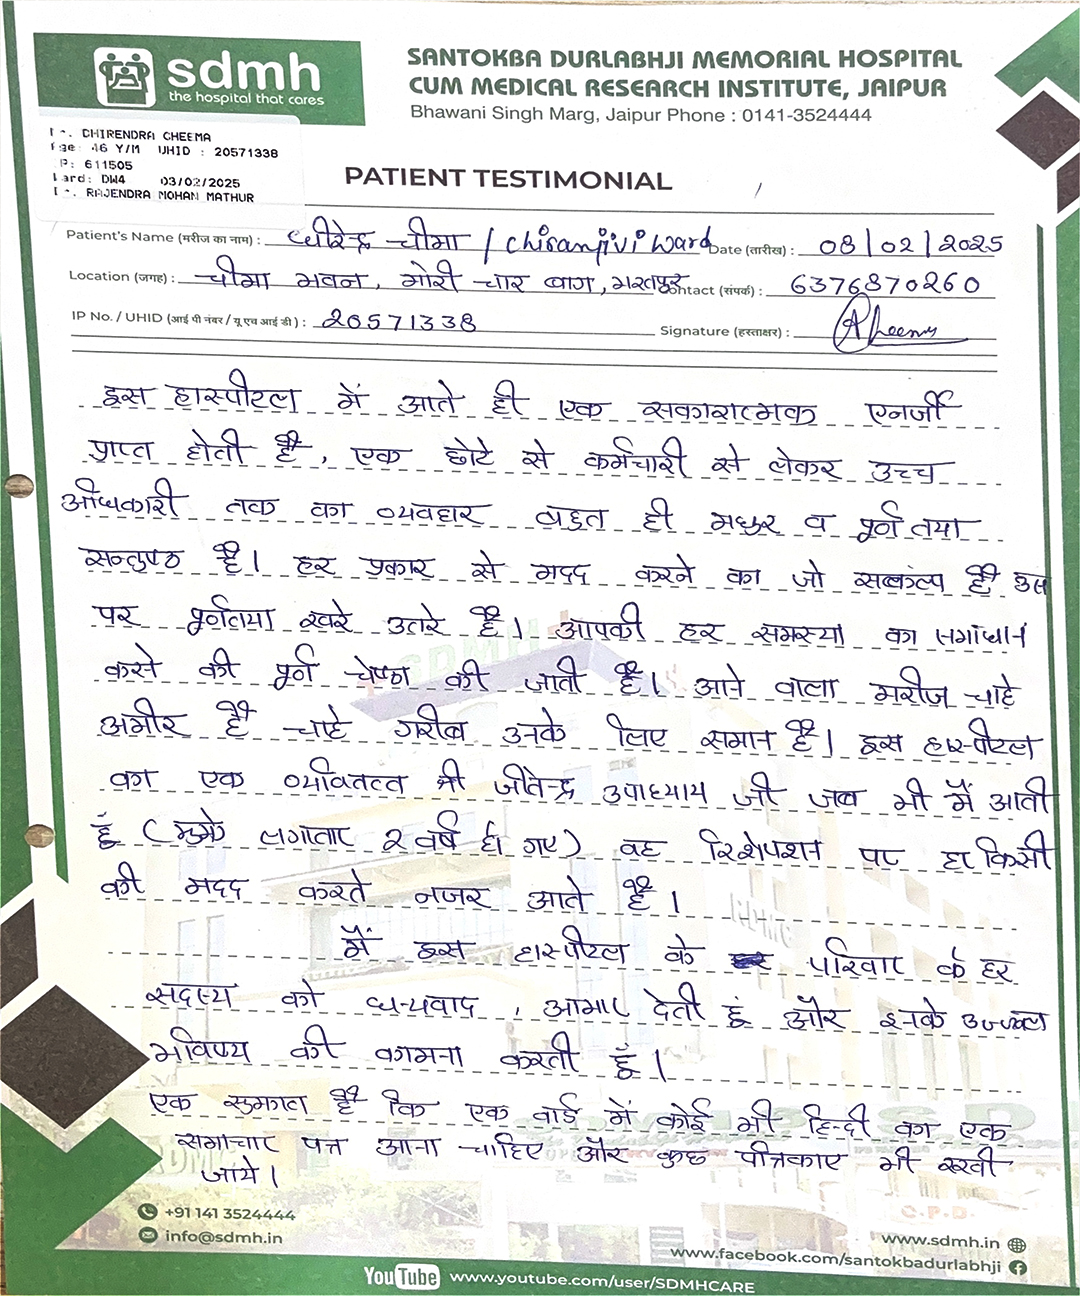 sdmh
the hospital that cares
SANTOKBA DURLABHJI MEMORIAL HOSPITAL
CUM MEDICAL RESEARCH INSTITUTE, JAIPUR
Bhawani Singh Marg, Jaipur Phone : 0141-3524444
DHIRENDRA CHEEMA
46 Y/M UHID : 20571338
611505
DW4 03/02/2025
RAJENDRA MOHAN MATHUR
PATIENT TESTIMONIAL
Patient's Name (मरीज का नाम) : धीरेन्द्र चीमा / Chiranjivi Ward Date (तारीख) : 08/02/2025
Location (जगह) : चीमा भवन, मोरी चार बाग, भरतपुर Contact (संपर्क) : 6376870260
IP No. / UHID (आई पी नंबर / यू एच आई डी) : 20571338
Signature (हस्ताक्षर) : Acheema
इस हास्पीटल में आते ही एक सकारात्मक एनर्जी
प्राप्त होती है, एक छोटे से कर्मचारी से लेकर उच्च
अधिकारी तक का व्यवहार बहुत ही मधुर व पूर्नतया
सन्तुष्ठ है। हर प्रकार से मदद करने का जो सकंल्प है उस
पर पूर्नतया खरे उतरे है। आपकी हर समस्या का समाधान
करने की पूर्न चेष्ठा की जाती है। आने वाला मरीज चाहे
अमीर है चाहे गरीब उनके लिए समान है। इस हास्पीटल
का एक व्यक्तित्त्व श्री जीतेन्द्र उपाध्याय जी जब भी मैं आती
हूं (मुझे लगातार 2 वर्ष हो गए) वह रिशेपशन पर हर किसी
की मदद करते नजर आते है।
मैं इस हास्पीटल के परिवार के हर
सदस्य को धन्यवाद, आभार देती हूं और इनके उज्जवल
भविष्य की कामना करती हूँ।
एक सुझाव है कि एक वार्ड में कोई भी हिन्दी का एक
समाचार पत्र आना चाहिए और कुछ पत्रिकाए भी रखी
जाये।
+91 141 3524444
info@sdmh.in
www.sdmh.in
www.facebook.com/santokbadurlabhji
YouTube www.youtube.com/user/SDMHCARE